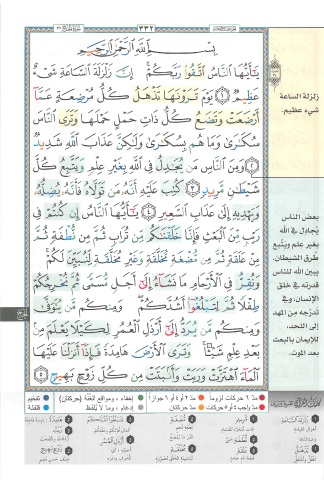 ٣٣٢
بِسْمِ اللَّهِ الرَّحْمَٰنِ الرَّحِيمِ
يَا أَيُّهَا النَّاسُ اتَّقُوا رَبَّكُمْ إِنَّ زَلْزَلَةَ السَّاعَةِ شَيْءٌ
عَظِيمٌ ١ يَوْمَ تَرَوْنَهَا تَذْهَلُ كُلُّ مُرْضِعَةٍ عَمَّا
أَرْضَعَتْ وَتَضَعُ كُلُّ ذَاتِ حَمْلٍ حَمْلَهَا وَتَرَى النَّاسَ
سُكَارَىٰ وَمَا هُم بِسُكَارَىٰ وَلَٰكِنَّ عَذَابَ اللَّهِ شَدِيدٌ
٢ وَمِنَ النَّاسِ مَن يُجَادِلُ فِي اللَّهِ بِغَيْرِ عِلْمٍ وَيَتَّبِعُ كُلَّ
شَيْطَانٍ مَّرِيدٍ ٣ كُتِبَ عَلَيْهِ أَنَّهُ مَن تَوَلَّاهُ فَأَنَّهُ يُضِلُّهُ
وَيَهْدِيهِ إِلَىٰ عَذَابِ السَّعِيرِ ٤ يَا أَيُّهَا النَّاسُ إِن كُنتُمْ فِي
رَيْبٍ مِّنَ الْبَعْثِ فَإِنَّا خَلَقْنَاكُم مِّن تُرَابٍ ثُمَّ مِن نُّطْفَةٍ ثُمَّ
مِنْ عَلَقَةٍ ثُمَّ مِن مُّضْغَةٍ مُّخَلَّقَةٍ وَغَيْرِ مُخَلَّقَةٍ لِّنُبَيِّنَ لَكُمْ
وَنُقِرُّ فِي الْأَرْحَامِ مَا نَشَاءُ إِلَىٰ أَجَلٍ مُّسَمًّى ثُمَّ نُخْرِجُكُمْ
طِفْلًا ثُمَّ لِتَبْلُغُوا أَشُدَّكُمْ وَمِنكُم مَّن يُتَوَفَّىٰ
وَمِنكُم مَّن يُرَدُّ إِلَىٰ أَرْذَلِ الْعُمُرِ لِكَيْلَا يَعْلَمَ مِن
بَعْدِ عِلْمٍ شَيْئًا وَتَرَى الْأَرْضَ هَامِدَةً فَإِذَا أَنزَلْنَا عَلَيْهَا
الْمَاءَ اهْتَزَّتْ وَرَبَتْ وَأَنبَتَتْ مِن كُلِّ زَوْجٍ بَهِيجٍ ٥
زلزلة الساعة
شيء عظيم.
بعض الناس
يُجادل في الله
بغير علم ويتّبع
طرق الشيطان.
يبين الله للناس
قدرته في خلق
الإنسان، وفي
تدرّجه من المهد
إلى اللحد،
للإيمان بالبعث
بعد الموت.
مدّ ٦ حركات لزوماً
مدّ ٢ أو ٤ أو ٦ جوازاً
إخفاء، ومواقع الغُنَّة (حركتان)
تفخيم
مدّ واجب ٤ أو ٥ حركات
مدّ حركتان
إدغام، وما لا يُلفَظ
قلقلة